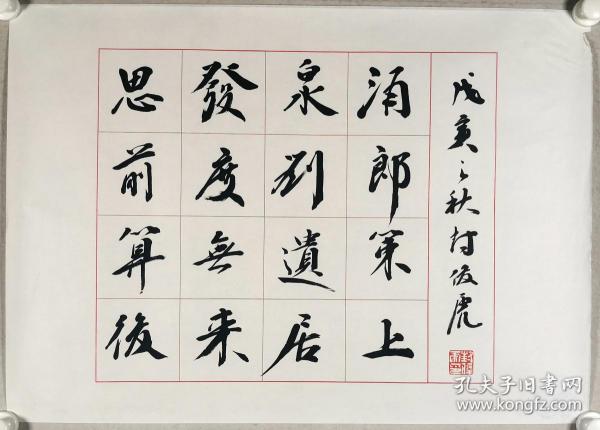 思發泉涌
前度刘郎
算無遺策
後来居上
戊寅之秋封俊虎
孔夫子旧书网
www.kongfz.com